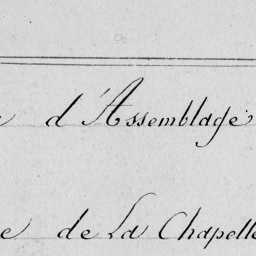 d'Assemblagé
e de La Chapelle